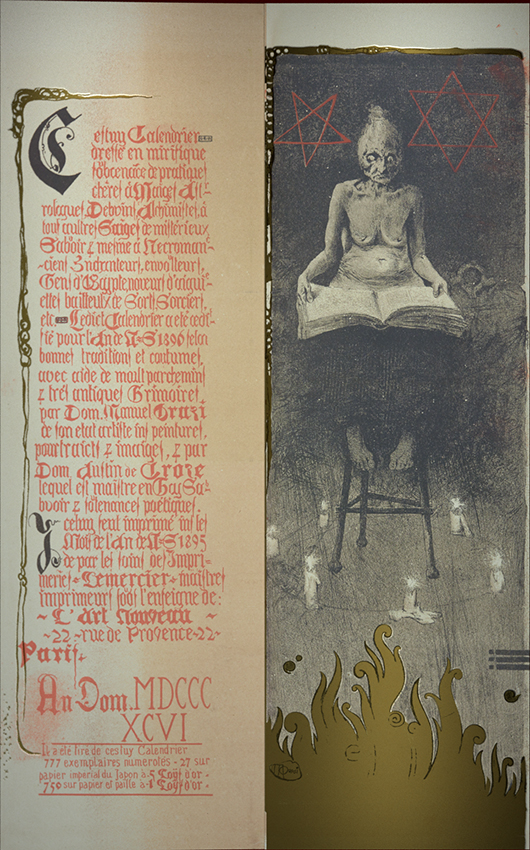 Cestuy Calendrier
dressé en mirifique
obocnance de pratiques
chères à Maiges Ast-
rologues, Debvins, Alchimistes, à
touſ aultres Saiges de mistérieux
Sabvoir & mesme à Necroman-
-ciens, Enchanteurs, envoulteurs,
Gens d'Egypte, noueurs d'aiguil-
ettes, bailleurs de Sorts, Sorciers,
etc. Ledict Calendrier a été œdi-
fié pour l'An de N-S 1896 selon
bonnes traditions et coutumes,
avec aide de moult parchemins
& très antiques Grimoires,
par Dom. Manuel Orazi
de son etat artiste ès peintures,
pourtraicts & imaiges, & par
Dom Austin de Croze
lequel est maistre en Gay Sa-
bvoir & sciences poétiques.
Ycelluy feut imprimé ès les
Mois de l'An de N-S 1895
de par les soins des Impri-
meries Lemercier maistres
imprimeurs soos l'enseigne de:
~ L'Art Nouveau
~22~rue de Provence~22~
Paris.
An Dom. MDCCC
XCVI
Il a été tiré de cestuy Calendrier
777 exemplaires numerotés - 27 sur
papier impérial du Japon à 5 Loÿs d'or -
750 sur papier et paille à 1 Loÿs d'or -